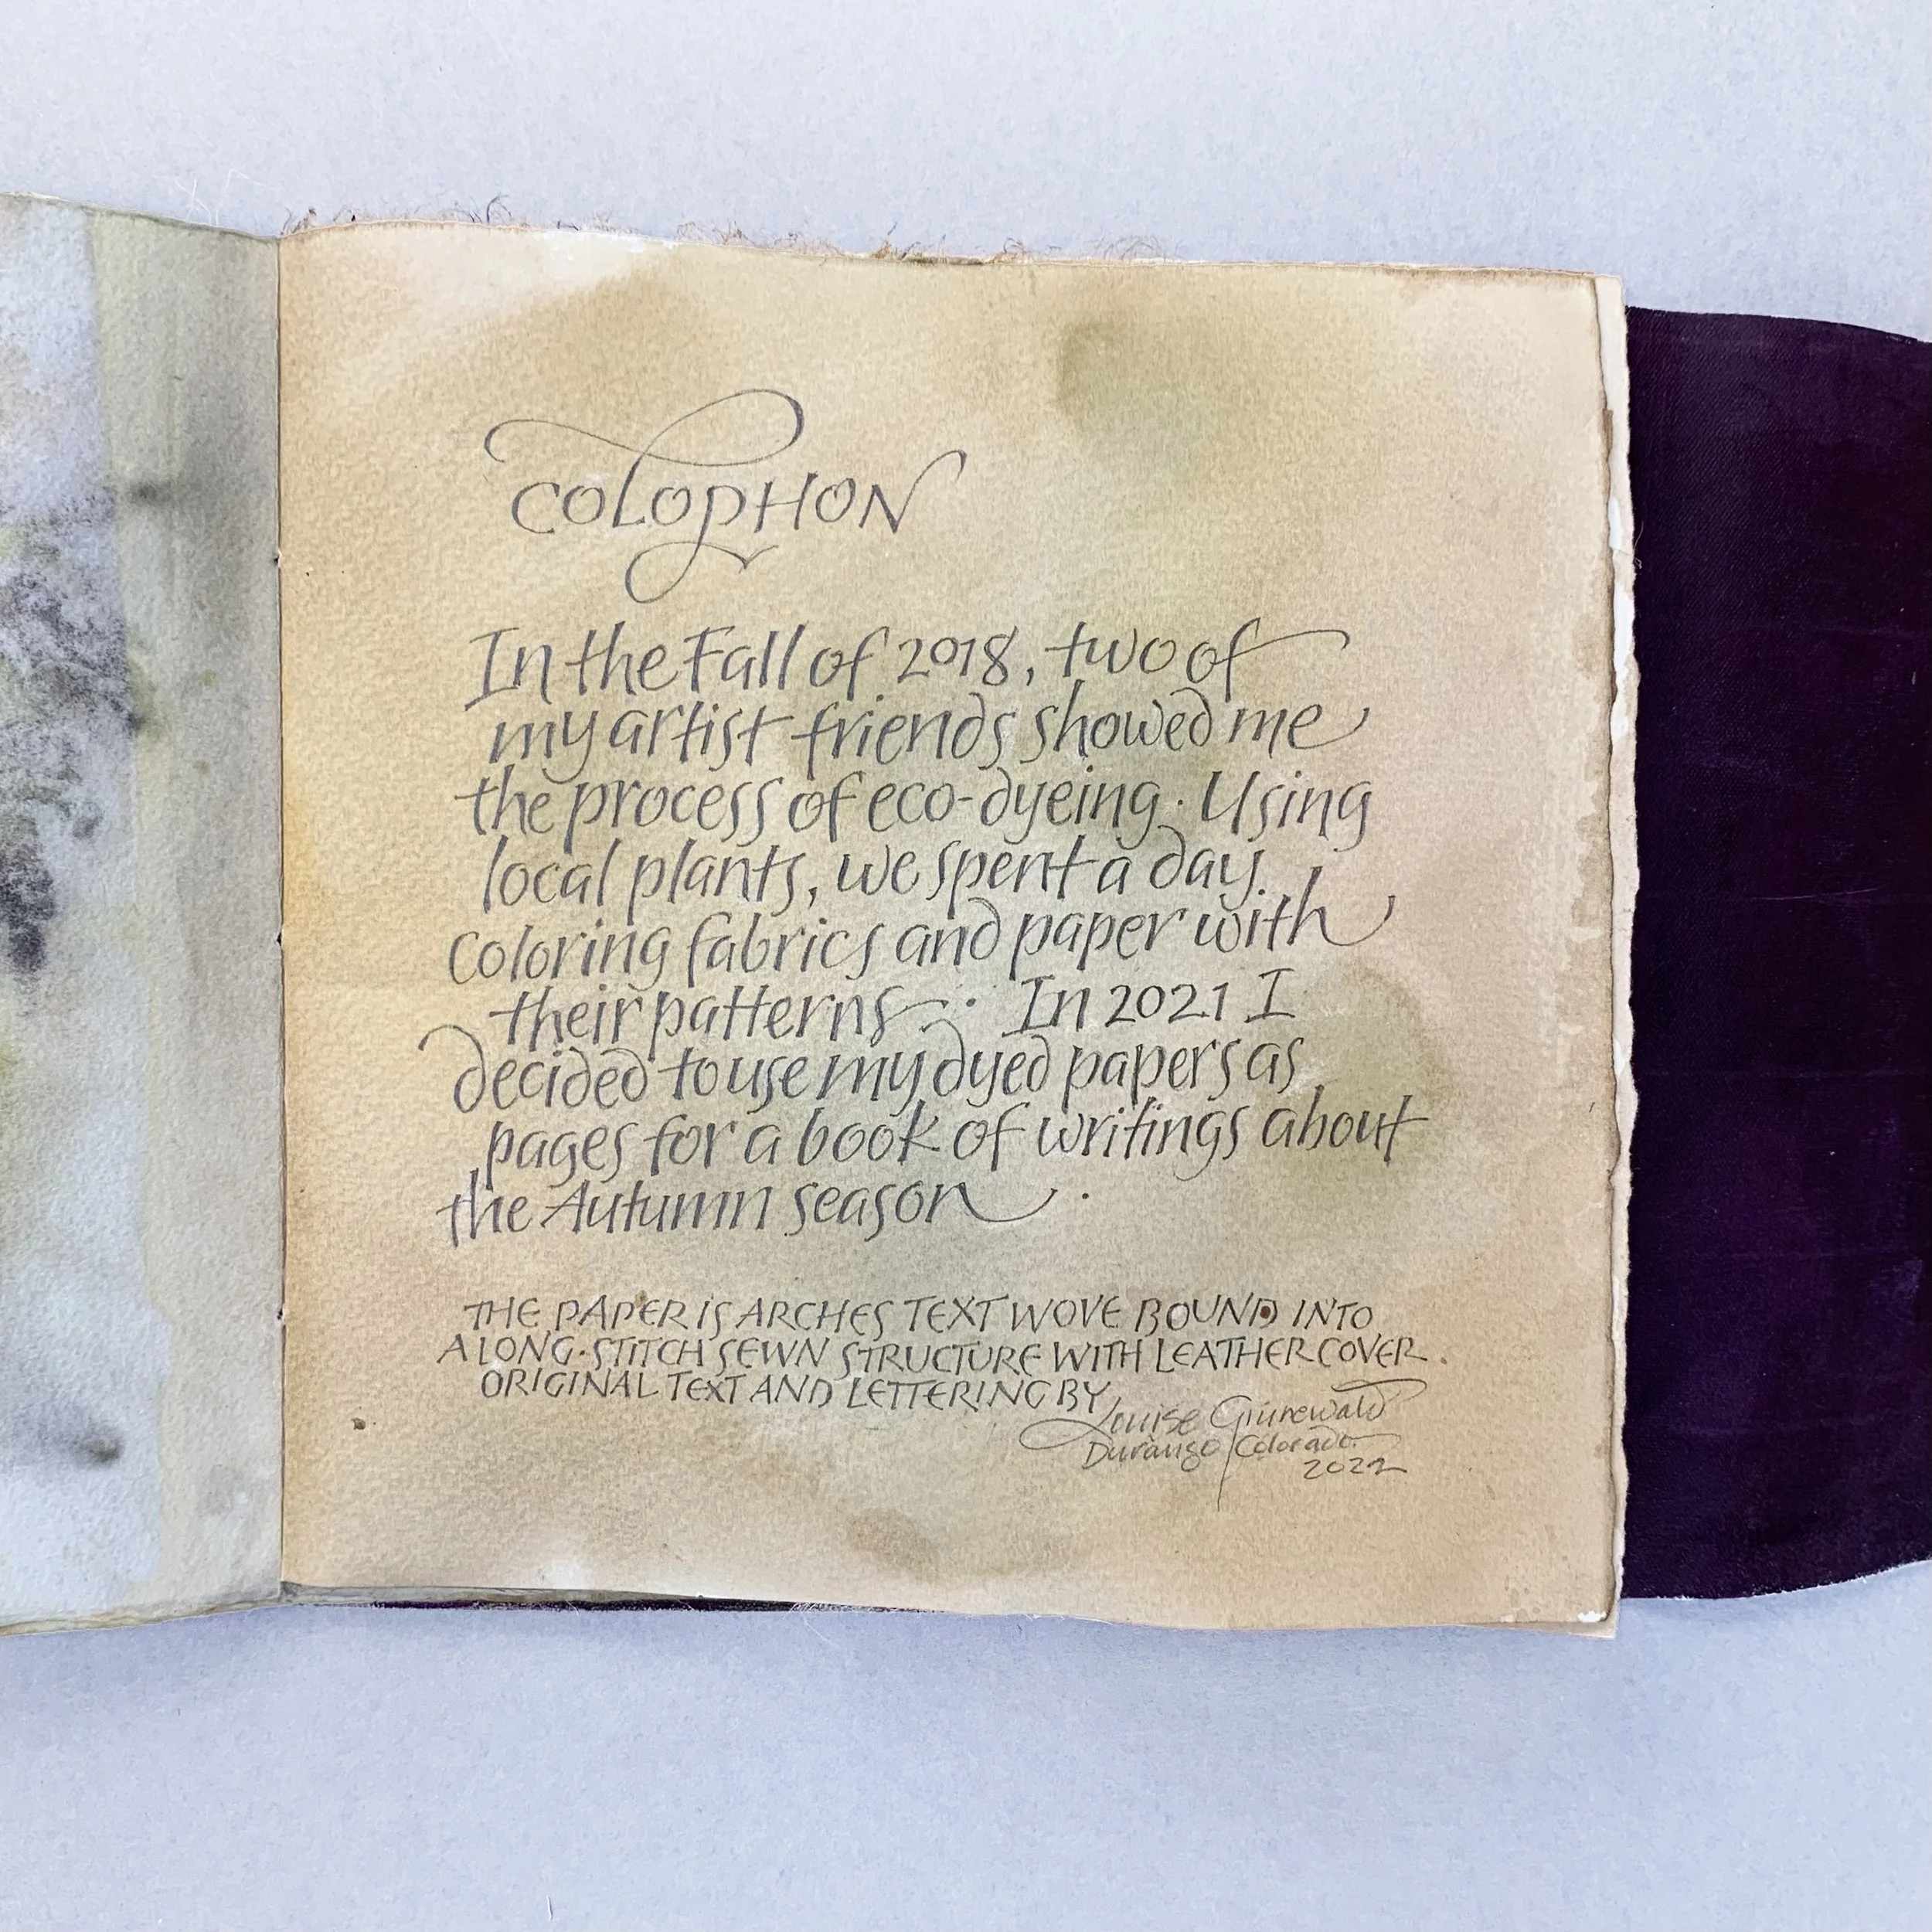 COLOPHON
In the Fall of 2018, two of
my artist friends showed me
the process of eco-dyeing. Using
local plants, we spent a day
coloring fabrics and paper with
their patterns. In 2021 I
decided to use my dyed papers as
pages for a book of writings about
the Autumn season.
THE PAPER IS ARCHES TEXT WOVE BOUND INTO
A LONG-STITCH SEWN STRUCTURE WITH LEATHER COVER.
ORIGINAL TEXT AND LETTERING BY
Louise Grunewald
Durango Colorado
2022